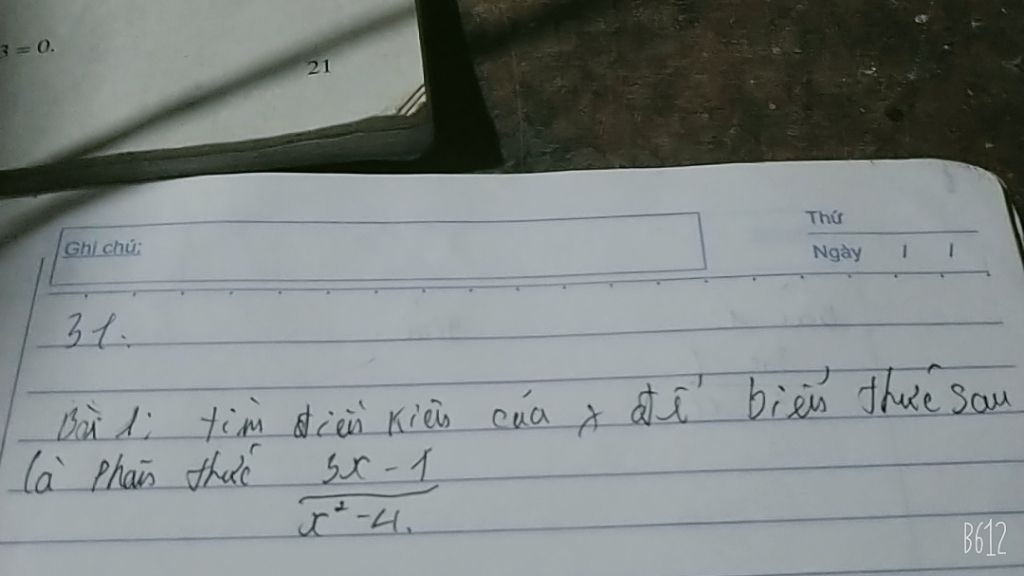 3 = 0.
21
Ghi chú:
Thứ
Ngày / /
31.
Bài 1: tìm điều kiện của x để biểu thức sau
là phân thức 3x - 1
x² - 4.
B612